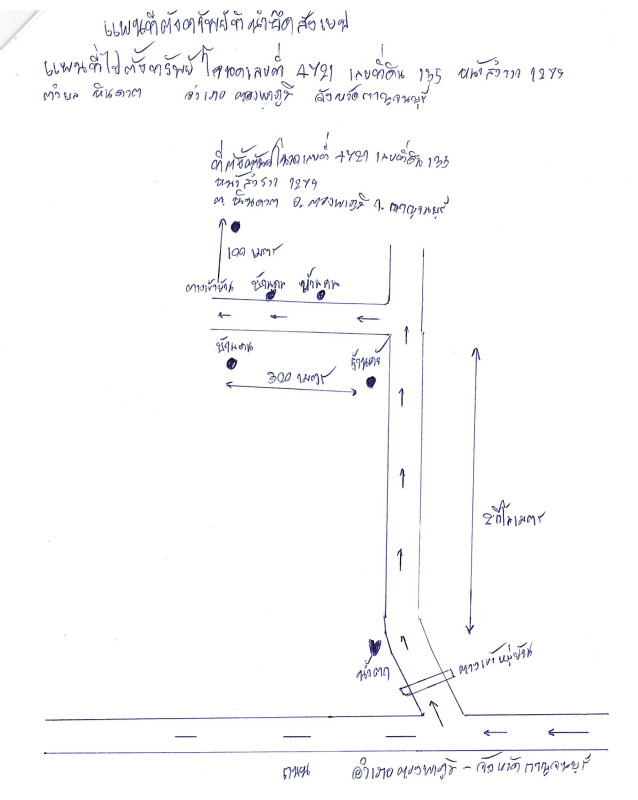 แผนที่ตั้งทรัพย์ที่นำยึดสังเขป
แผนที่ไปตั้งทรัพย์ โฉนดเลขที่ 4721 เลขที่ดิน 135 หน้าสำรวจ 1279
ตำบล หินดาด อำเภอ ทองผาภูมิ จังหวัดกาญจนบุรี
ที่ตั้งทรัพย์โฉนดเลขที่ 4721 เลขที่ดิน 135
หน้าสำรวจ 1279
ต. หินดาด อ. ทองผาภูมิ จ. กาญจนบุรี
100 เมตร
ทางเข้าบ้าน บ้านคน บ้านคน
บ้านคน
ร้านค้า
300 เมตร
2 กิโลเมตร
น้ำตก
ทางเข้าหมู่บ้าน
ถนน อำเภอทองผาภูมิ - จังหวัดกาญจนบุรี